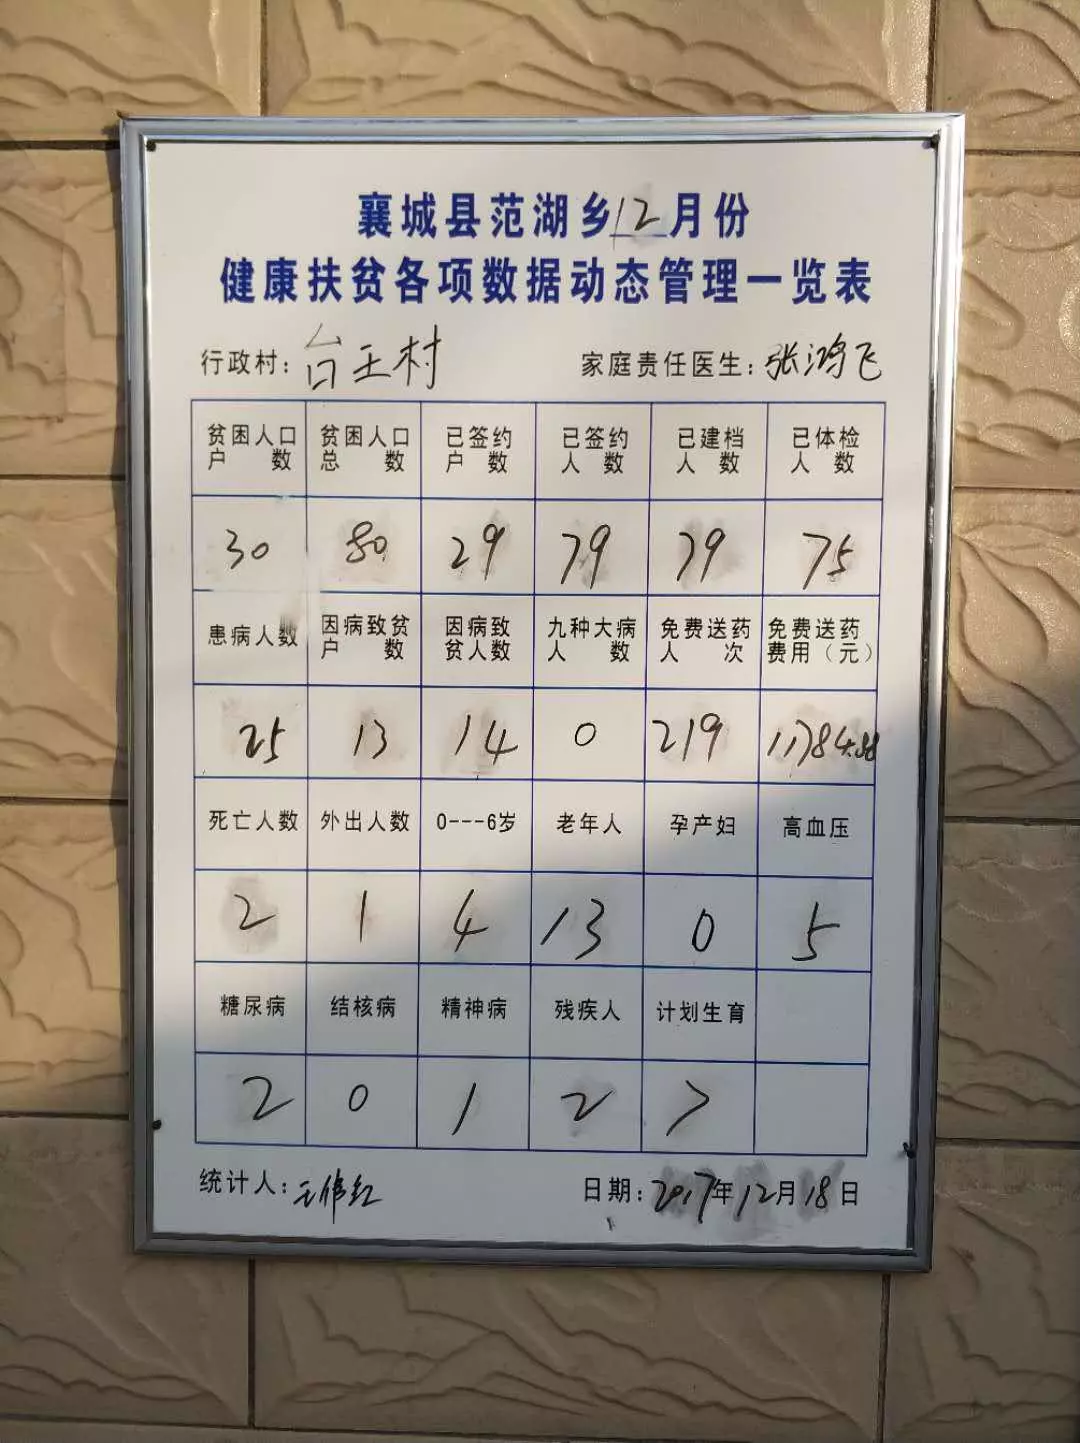 襄城县范湖乡12月份
健康扶贫各项数据动态管理一览表
行政村：台王村 家庭责任医生：张鸿飞
贫困人口户数 贫困人口总数 已签约户数 已签约人数 已建档人数 已体检人数
30 80 29 79 79 75
患病人数 因病致贫户数 因病致贫人数 九种大病人数 免费送药人次 免费送药费用（元）
25 13 14 0 219
死亡人数 外出人数 0---6岁 老年人 孕产妇 高血压
2 1 4 13 0 5
糖尿病 结核病 精神病 残疾人 计划生育
2 0 1 2
统计人：王伟红 日期：2017年12月18日